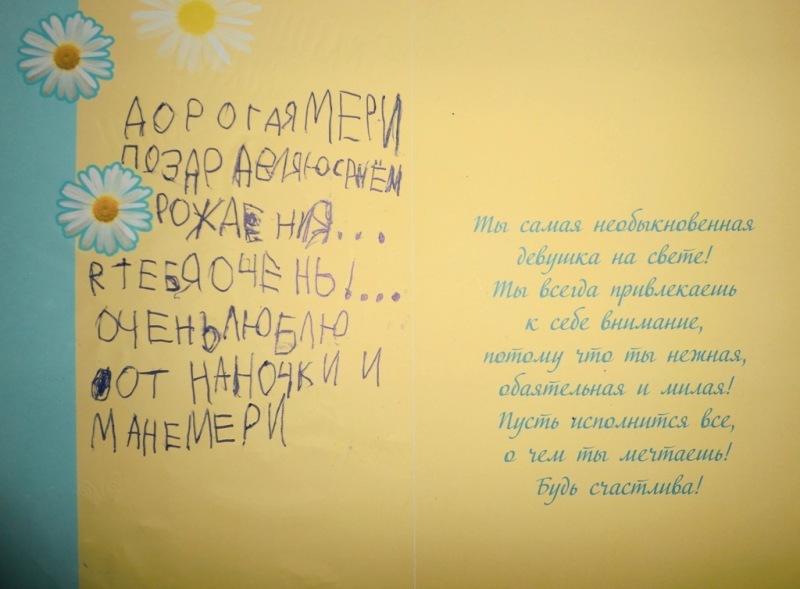 ДОРОГАЯ МЕРИ
ПОЗДРАВЛЯЮ С ДНЁМ
РОЖДЕНИЯ...
Я ТЕБЯ ОЧЕНЬ!...
ОЧЕНЬ ЛЮБЛЮ
ОТ НАНОЧКИ И
МАНЕМЕРИ
Ты самая необыкновенная
девушка на свете!
Ты всегда привлекаешь
к себе внимание,
потому что ты нежная,
обаятельная и милая!
Пусть исполнится все,
о чем ты мечтаешь!
Будь счастлива!